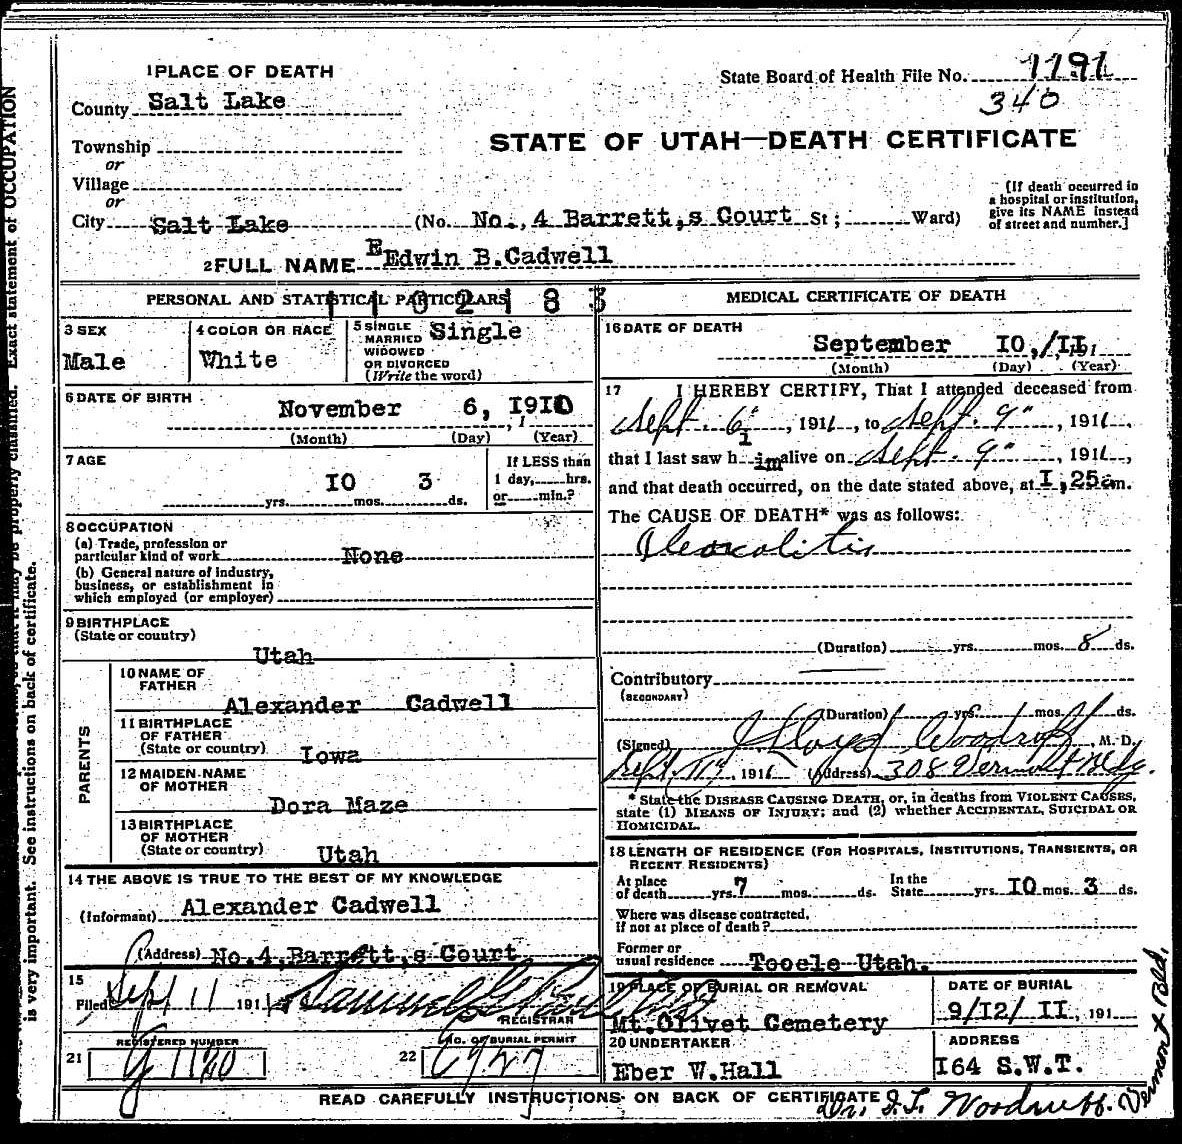 1 PLACE OF DEATH
State Board of Health File No. 1191
County Salt Lake
340
STATE OF UTAH—DEATH CERTIFICATE
Township
or
Village
or
City Salt Lake (No. No., 4 Barrett,s Court St ; Ward)
[If death occurred in
a hospital or institution,
give its NAME instead
of street and number.]
2 FULL NAME Edwin B.Cadwell
PERSONAL AND STATISTICAL PARTICULARS
3 SEX
Male
4 COLOR OR RACE
White
5 SINGLE
MARRIED
WIDOWED
OR DIVORCED
(Write the word)
Single
6 DATE OF BIRTH
November 6, 1910
(Month) (Day) (Year)
7 AGE
IO 3
yrs. mos. ds.
If LESS than
1 day, hrs.
or min.?
8 OCCUPATION
(a) Trade, profession or
particular kind of work None
(b) General nature of industry,
business, or establishment in
which employed (or employer)
9 BIRTHPLACE
(State or country)
Utah
PARENTS
10 NAME OF
FATHER
Alexander Cadwell
11 BIRTHPLACE
OF FATHER
(State or country) Iowa
12 MAIDEN NAME
OF MOTHER
Dora Maze
13 BIRTHPLACE
OF MOTHER
(State or country) Utah
14 THE ABOVE IS TRUE TO THE BEST OF MY KNOWLEDGE
(Informant) Alexander Cadwell
(Address) No.4,Barrett,s Court
15
Filed Sept 11 1911 Samuel G
REGISTRAR
REGISTERED NUMBER
21
No. OF BURIAL PERMIT
22
MEDICAL CERTIFICATE OF DEATH
16 DATE OF DEATH
September IO,/II, 191
(Month) (Day) (Year)
17 I HEREBY CERTIFY, That I attended deceased from
Sept. 6", 1911, to Sept. 9", 1911,
that I last saw h im alive on Sept. 9", 1911,
and that death occurred, on the date stated above, at I,25a m.
The CAUSE OF DEATH* was as follows:
Ileocolitis
(Duration) yrs. mos. 8 ds.
Contributory
(SECONDARY)
(Duration) yrs. mos. ds.
(Signed) J Lloyd Woodruff, M. D.
Sept. 11", 1911 (Address) 308 Vermont Bldg.
* State the DISEASE CAUSING DEATH, or, in deaths from VIOLENT CAUSES,
state (1) MEANS OF INJURY; and (2) whether ACCIDENTAL, SUICIDAL OR
HOMICIDAL.
18 LENGTH OF RESIDENCE (FOR HOSPITALS, INSTITUTIONS, TRANSIENTS, OR
RECENT RESIDENTS)
At place
of death yrs. 7 mos. ds.
In the
State yrs. IO mos. 3 ds.
Where was disease contracted,
If not at place of death?
Former or
usual residence Tooele Utah.
19 PLACE OF BURIAL OR REMOVAL
Mt.Olivet Cemetery
DATE OF BURIAL
9/I2/ II, 191
20 UNDERTAKER
Eber W.Hall
ADDRESS
I64 S.W.T.
READ CAREFULLY INSTRUCTIONS ON BACK OF CERTIFICATE
Dr. J.L. Woodruff. Vermont Bld.
Exact statement of OCCUPATION
may be properly classified.
is very important. See instructions on back of certificate.